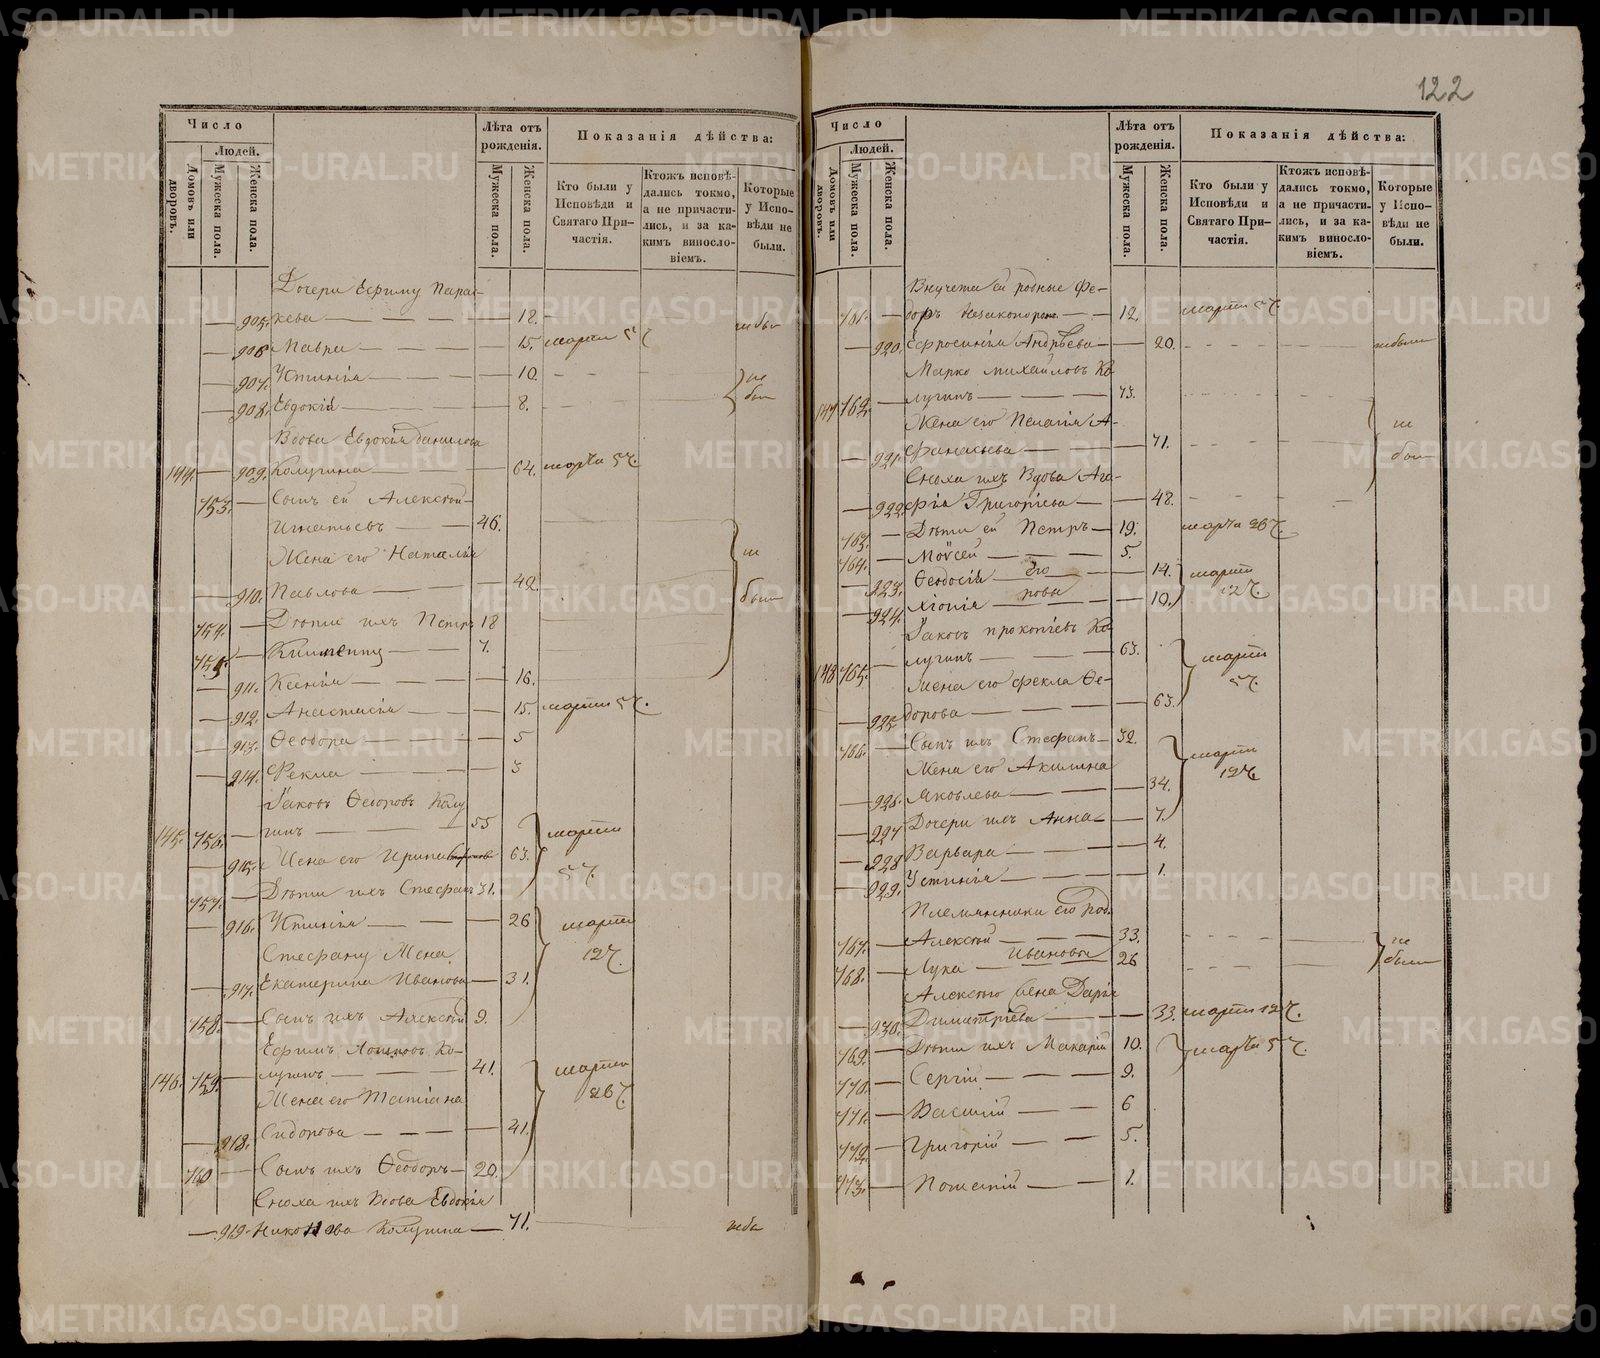 122
Число
Людей.
Домовъ или дворовъ.
Мужеска пола.
Женска пола.
Лѣта отъ рожденія.
Мужеска пола.
Женска пола.
Показанія дѣйства:
Кто были у Исповѣди и Святаго Причастія.
Ктожъ исповѣдались токмо, а не причастились, и за какимъ винословіемъ.
Которые у Исповѣди не были.
Дочери Ефиму Парас-
— 905. кева — 18. не был
— 906 Мавра — 15. марта 5 ч.
— 907. Устинія — 10.
— 908. Евдокія — 8. не был
Вдова Евдокія Данилова
144. — 909. Калугина — 64. марта 5 ч.
753. — Сынъ ей Алексѣй
Игнатьевъ — 46.
Жена его Наталія
— 910. Павлова — 42. не были
754. — Дѣти ихъ Петръ 18
755. — Климентъ — 7.
— 911. Ксенія — 16.
— 912. Анастасія — 15. марта 5 ч.
— 913. Ѳеодора — 5
— 914. Фекла — 3
Іаковъ Ѳедоровъ Калу
145. 756. — гинъ — 55 марта
— 915. Жена его Ирина — 63. 5 ч.
757. — Дѣти ихъ Стефанъ 31.
— 916. Устинія — 26 марта
Стефану Жена 12 ч.
— 917. Екатерина Иванова — 31.
758. — Сынъ ихъ Алексѣй 9.
Ефимъ Ко-
146. 759. — лугинъ — 41. марта
Жена его Татіана 26 ч.
— 918. Сидорова — 41.
760 — Сынъ ихъ Ѳеодоръ — 20.
Сноха ихъ Вдова Евдокія
— 919. Никонова Калугина — 71. не бы
Число
Людей.
Домовъ или дворовъ.
Мужеска пола.
Женска пола.
Лѣта отъ рожденія.
Мужеска пола.
Женска пола.
Показанія дѣйства:
Кто были у Исповѣди и Святаго Причастія.
Ктожъ исповѣдались токмо, а не причастились, и за какимъ винословіемъ.
Которые у Исповѣди не были.
Внучета ей родные Фе-
761. — доръ — 12. марта 5 ч.
— 920. Ефросинія Андрѣева — 20. не были
Марко Михайловъ Ка
147 762. — лугинъ — 73.
Жена его Пелагія А-
— 921. фанасьева — 71. не был
Сноха ихъ Вдова Ага-
— 922 фія Григорьева — 48.
763. — Дѣти ей Петръ — 19. марта 26 ч.
764. — Моѵсей — 5.
— 923. Ѳеодосія — 14. марта
— 924. Хіонія — 10. 12 ч.
Іаковъ Прокопіевъ Ка-
148 765. — лугинъ — 63. марта
Жена его Фекла Ѳе- 5 ч.
— 925 дорова — 63.
766. — Сынъ ихъ Стефанъ — 32. марта
Жена его Акилина 12 ч.
— 926. Яковлева — 34.
— 927 Дочери ихъ Анна — 7.
— 928 Варвара — 4.
— 929. Устинія — 1.
Племянники его род.
767. — Алексѣй — 33. не
Ивановы
768. — Лука — 26 были
Алексѣю Жена Дарія
— 930. Димитріева — 33. марта 12 ч.
769. — Дѣти ихъ Макарій 10. марта 5 ч.
770. — Сергій — 9.
771. — Василій — 6
772. — Григорій — 5.
773. — — 1.
METRIKI.GASO-URAL.RU